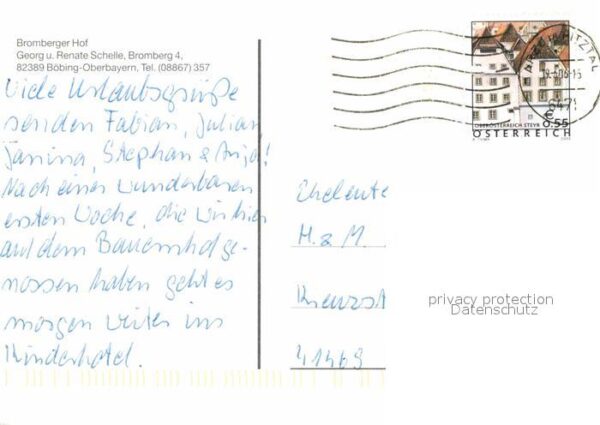 Bromberger Hof
Georg u. Renate Schelle, Bromberg 4,
82389 Böbing-Oberbayern, Tel. (08867) 357
Viele Urlaubsgrüße
senden Fabian, Julian,
Janina, Stephan & Anja!
Nach einer wunderbaren
ersten Woche, die wir hier
auf dem Bauernhof ge-
nossen haben geht es
morgen weiter ins
Kinderhotel.
6471
€ 0,55
OBERÖSTERREICH STEYR
ÖSTERREICH
Eheleute
H. & M.
41469
privacy protection
Datenschutz